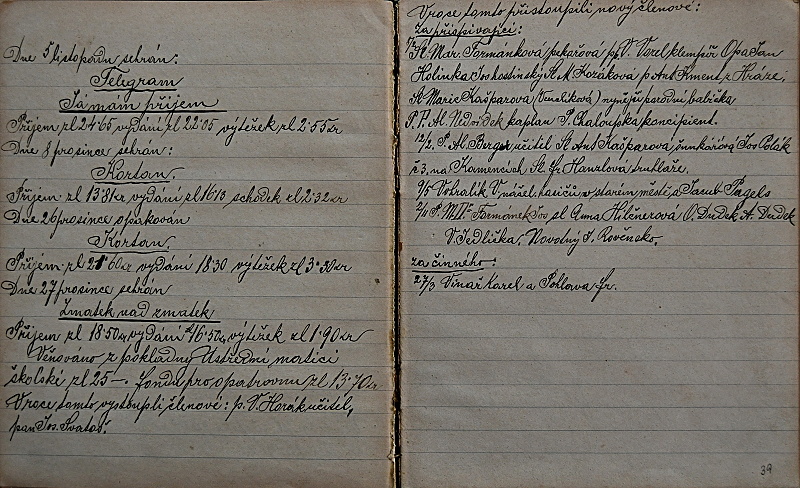 Dne 5 listopadu sehrán:
Telegram
Já mám příjem
Příjem zl 24·65 vydání zl 22·05 výtěžek zl 2·55 kr
Dne 8 prosince sehrán:
Kortan.
Příjem zl 13·81 kr vydání zl 16·13 schodek zl 2·32 kr
Dne 26 prosince opakován
Kortan.
Příjem zl 21·60 kr vydání 18·30 výtěžek zl 3·30 kr
Dne 27 prosince sehrán
Zmatek nad zmatek
Příjem zl 18·50 kr vydání zl 16·50 kr výtěžek zl 1·90 kr
Věnováno z pokladny Ústřední matici
školské zl 25 — fondu pro opatrovnu zl 13·70 kr
V roce tomto vystoupli členové: p. V. Horák učitel,
pan Jos. Svatoš.
V roce tomto přistoupili nový členové:
Za přispívající:
Sl. Mar. Formánková, pekařová, p. V. Vozel klempíř
Holinka Jos hostinský Sl. M. Kozáková p. Ant. Kment z Hráze,
Sl. Marie Kašparova nynější porodní babička
P. P. Al. kaplan P. Chaloupka koncipient.
12/2. P. Al. Berger učitel Sl. Ant. Kašparova Jos Polák
č 3. na Kamencích Sl. Fr. Hanzlova truhláře.
9/5 Vobralík V. hasičů v starém městě, a Jacub Pagels
Formanek Jos sl. Anna Hilčnerová O. Dudek A. Dudek
V. Jedlička, Novotný J. Rovensko.
za činného:
27/3 Vinař Karel a Pohlova Fr.
39